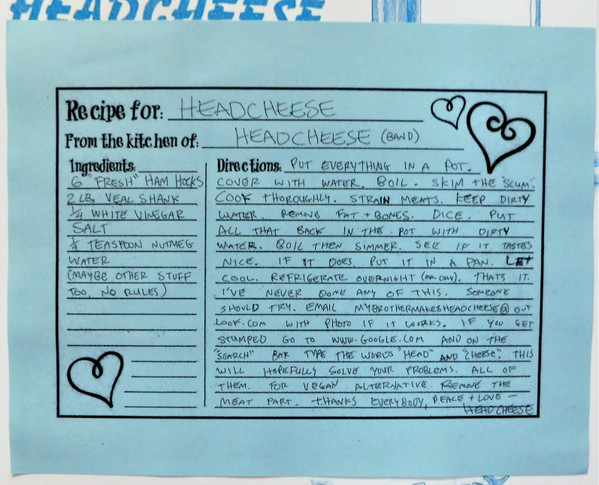 HEADCHEESE
Recipe for: HEADCHEESE
From the kitchen of: HEADCHEESE (BAND)
Ingredients:
6 "FRESH" HAM HOCKS
2 LB. VEAL SHANK
1/4 WHITE VINEGAR
SALT
1/4 TEASPOON NUTMEG
WATER
(MAYBE OTHER STUFF
TOO, NO RULES)
Directions: PUT EVERYTHING IN A POT.
COVER WITH WATER. BOIL. SKIM THE "SCUM".
COOK THOROUGHLY. STRAIN MEATS. KEEP DIRTY
WATER. REMOVE FAT + BONES. DICE. PUT
ALL THAT BACK IN THE POT WITH DIRTY
WATER. BOIL THEN SIMMER. SEE IF IT TASTES
NICE. IF IT DOES. PUT IT IN A PAN. LET
COOL. REFRIGERATE OVERNIGHT (OR DAY). THATS IT.
I'VE NEVER DONE ANY OF THIS. SOMEONE
SHOULD TRY. EMAIL MYBROTHERMAKESHEADCHEESE@OUT
LOOK.COM WITH PHOTO IF IT WORKS. IF YOU GET
STUMPED GO TO WWW.GOOGLE.COM AND ON THE
"SEARCH" BAR TYPE THE WORDS "HEAD" AND "CHEESE". THIS
WILL HOPEFULLY SOLVE YOUR PROBLEMS. ALL OF
THEM. FOR VEGAN ALTERNATIVE. REMOVE THE
MEAT PART. THANKS EVERYBODY, PEACE + LOVE -
HEADCHEESE